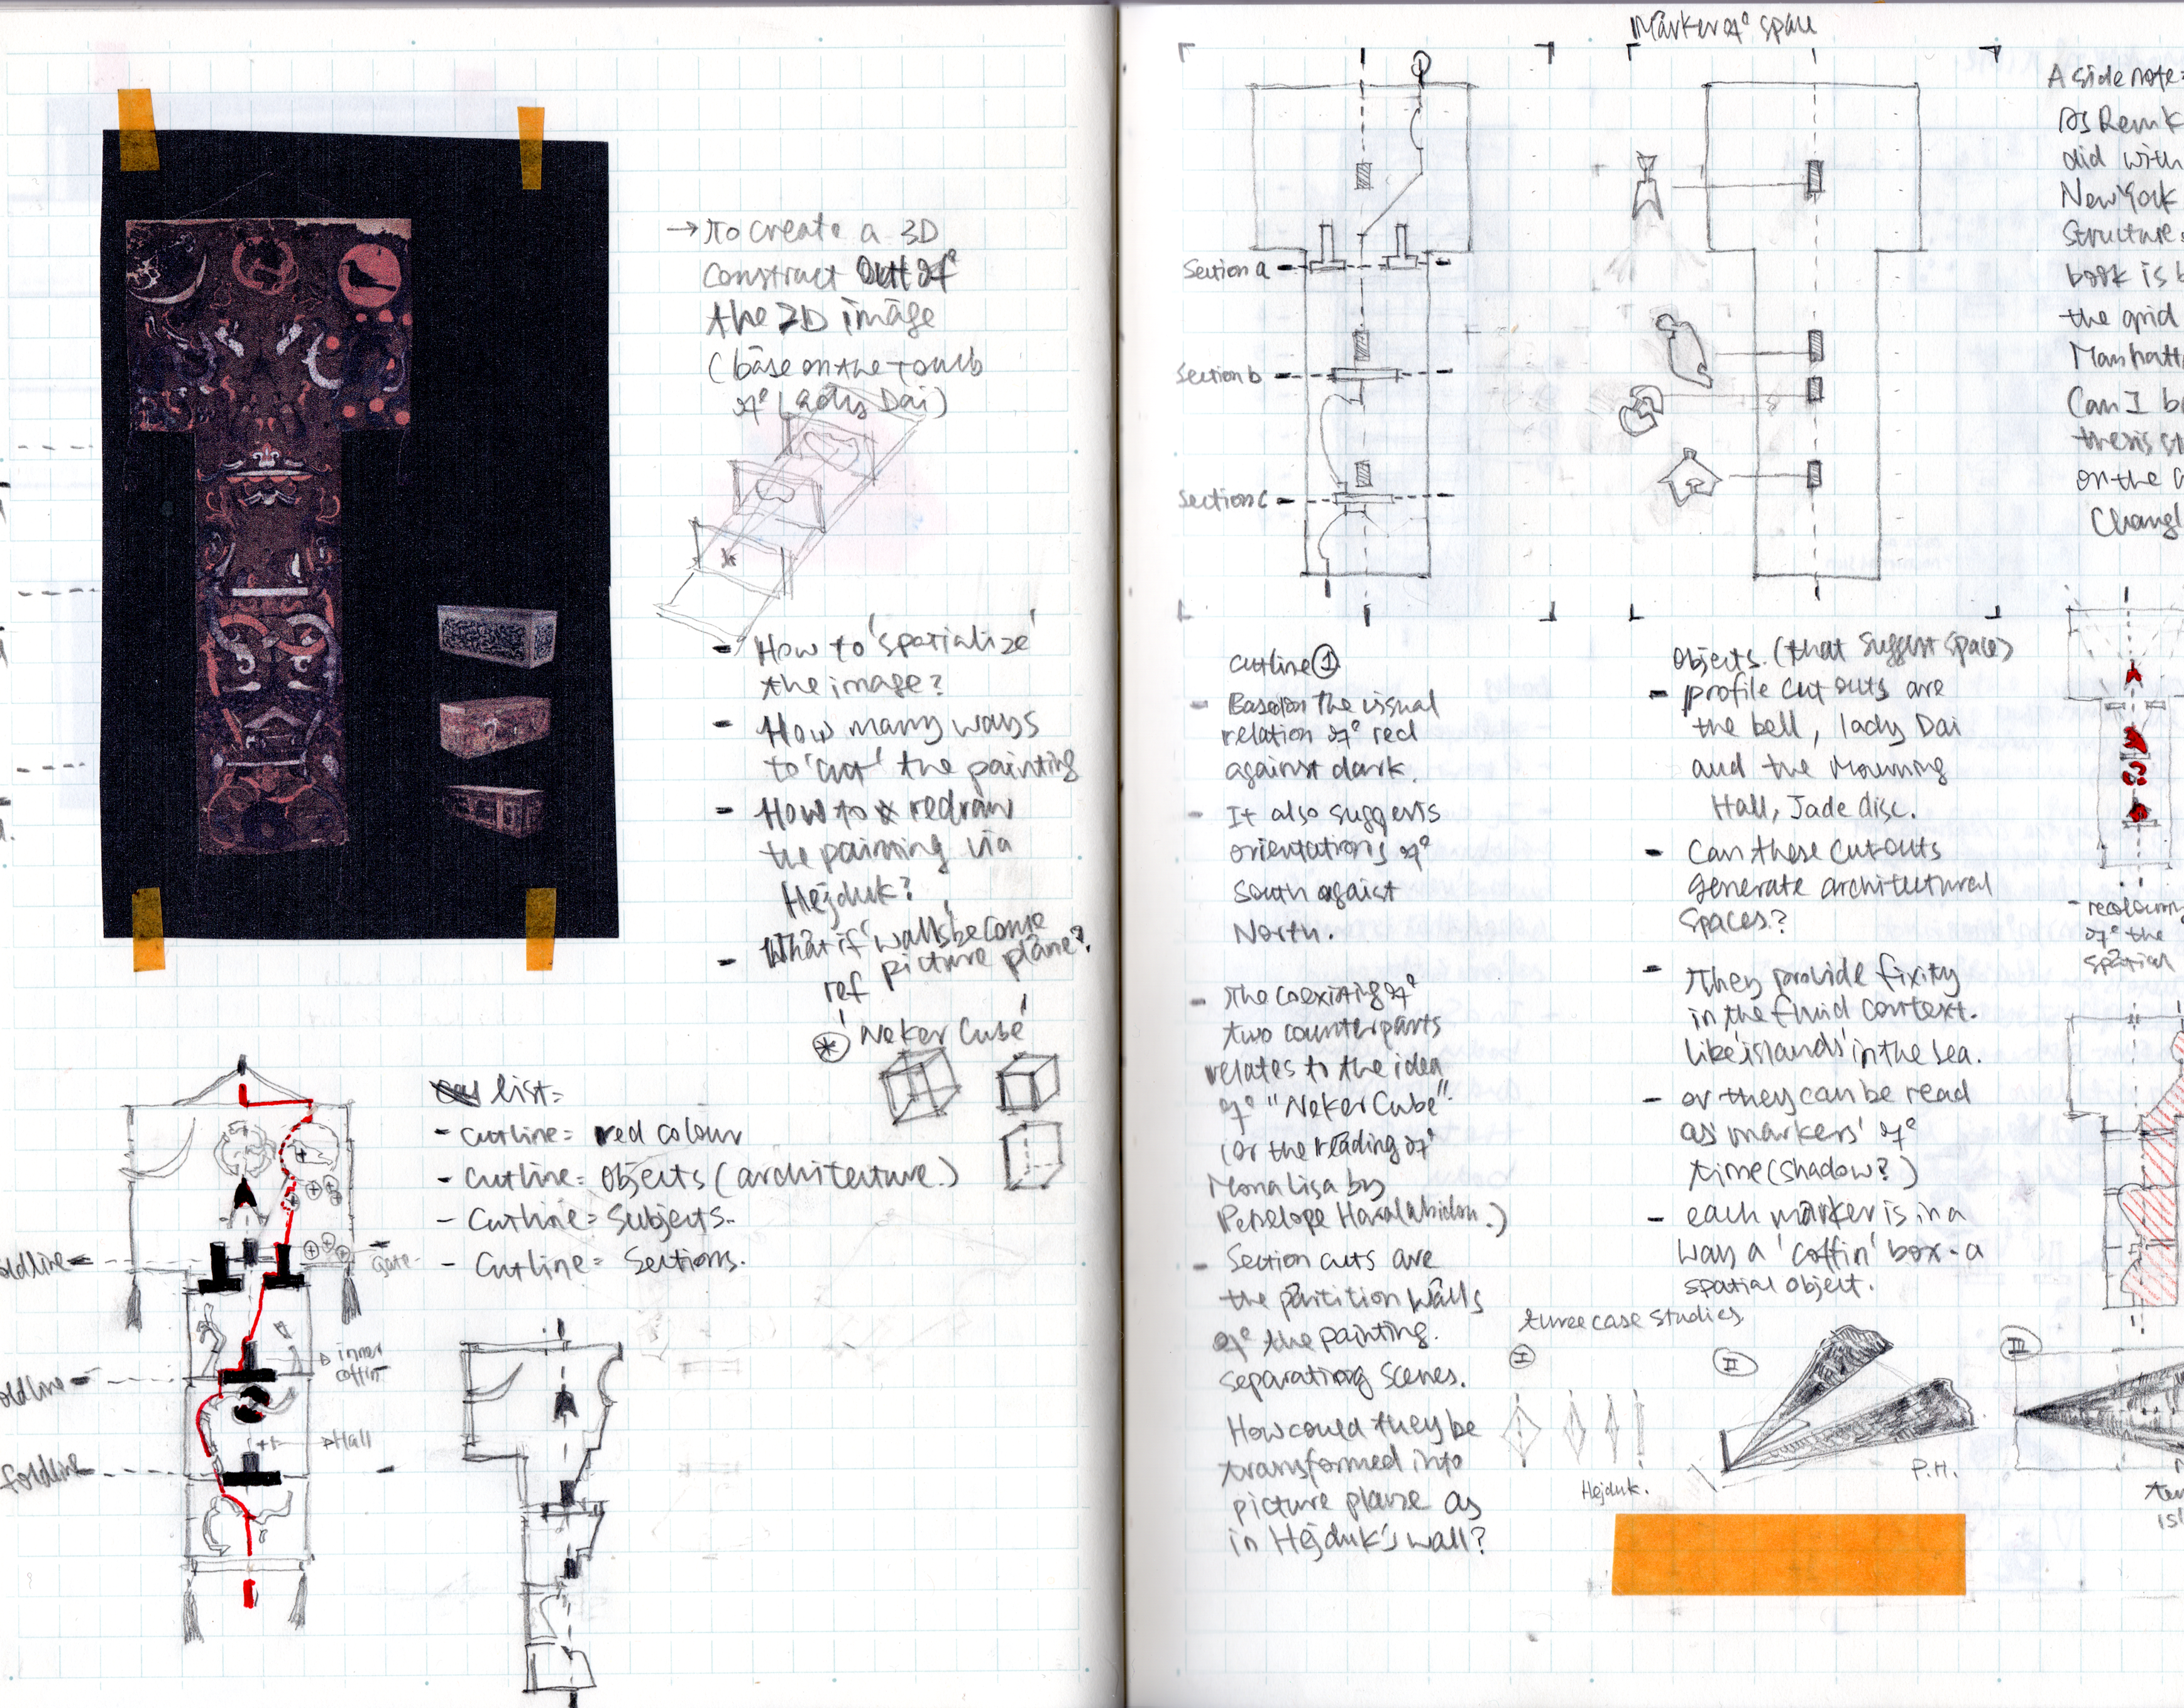 → To create a 3D
construct out of
the 2D image
(base on the tomb
of Lady Dai)
- How to 'spatialize'
the image?
- How many ways
to 'cut' the painting
- How to redraw
the painting via
Hejduk?
- What if 'walls' become
picture plane?
ref
'Neker Cube'
list:
- cutline: red colour
- cutline: objects (architecture.)
- cutline: subjects.
- cutline: sections.
oldline
Gate
inner
coffin
oldline
Hall
foldline
Marker of space
Section a
Section b
Section c
cutline ①
- Based on the visual
relation of red
against dark.
- It also suggests
orientations of
South agaist
North.
- The coexisting of
two counterparts
relates to the idea
of "Neker Cube"
(or the reading of
Mona Lisa by
Penelope Haralabidou.)
- Section cuts are
the partition walls
of the painting.
separating scenes.
How could they be
transformed into
picture plane as
in Hejduk's wall?
objects. (that suggest space)
- profile cut outs are
the bell, lady Dai
and the Mourning
Hall, Jade disc.
- Can these cutouts
generate architectural
spaces?
- They provide fixity
in the fluid context.
like 'islands' in the sea.
- or they can be read
as 'markers' of
time (shadow?)
- each marker is in a
way a 'coffin' box - a
spatial object.
three case studies
I
II
III
Hejduk.
P.H.
A side note:
As Remk
did with
New York
Structure.
book is b
the grid
Manhatt
Can I b
thesis st
on the
Changl
- recolouring
of the
spatial